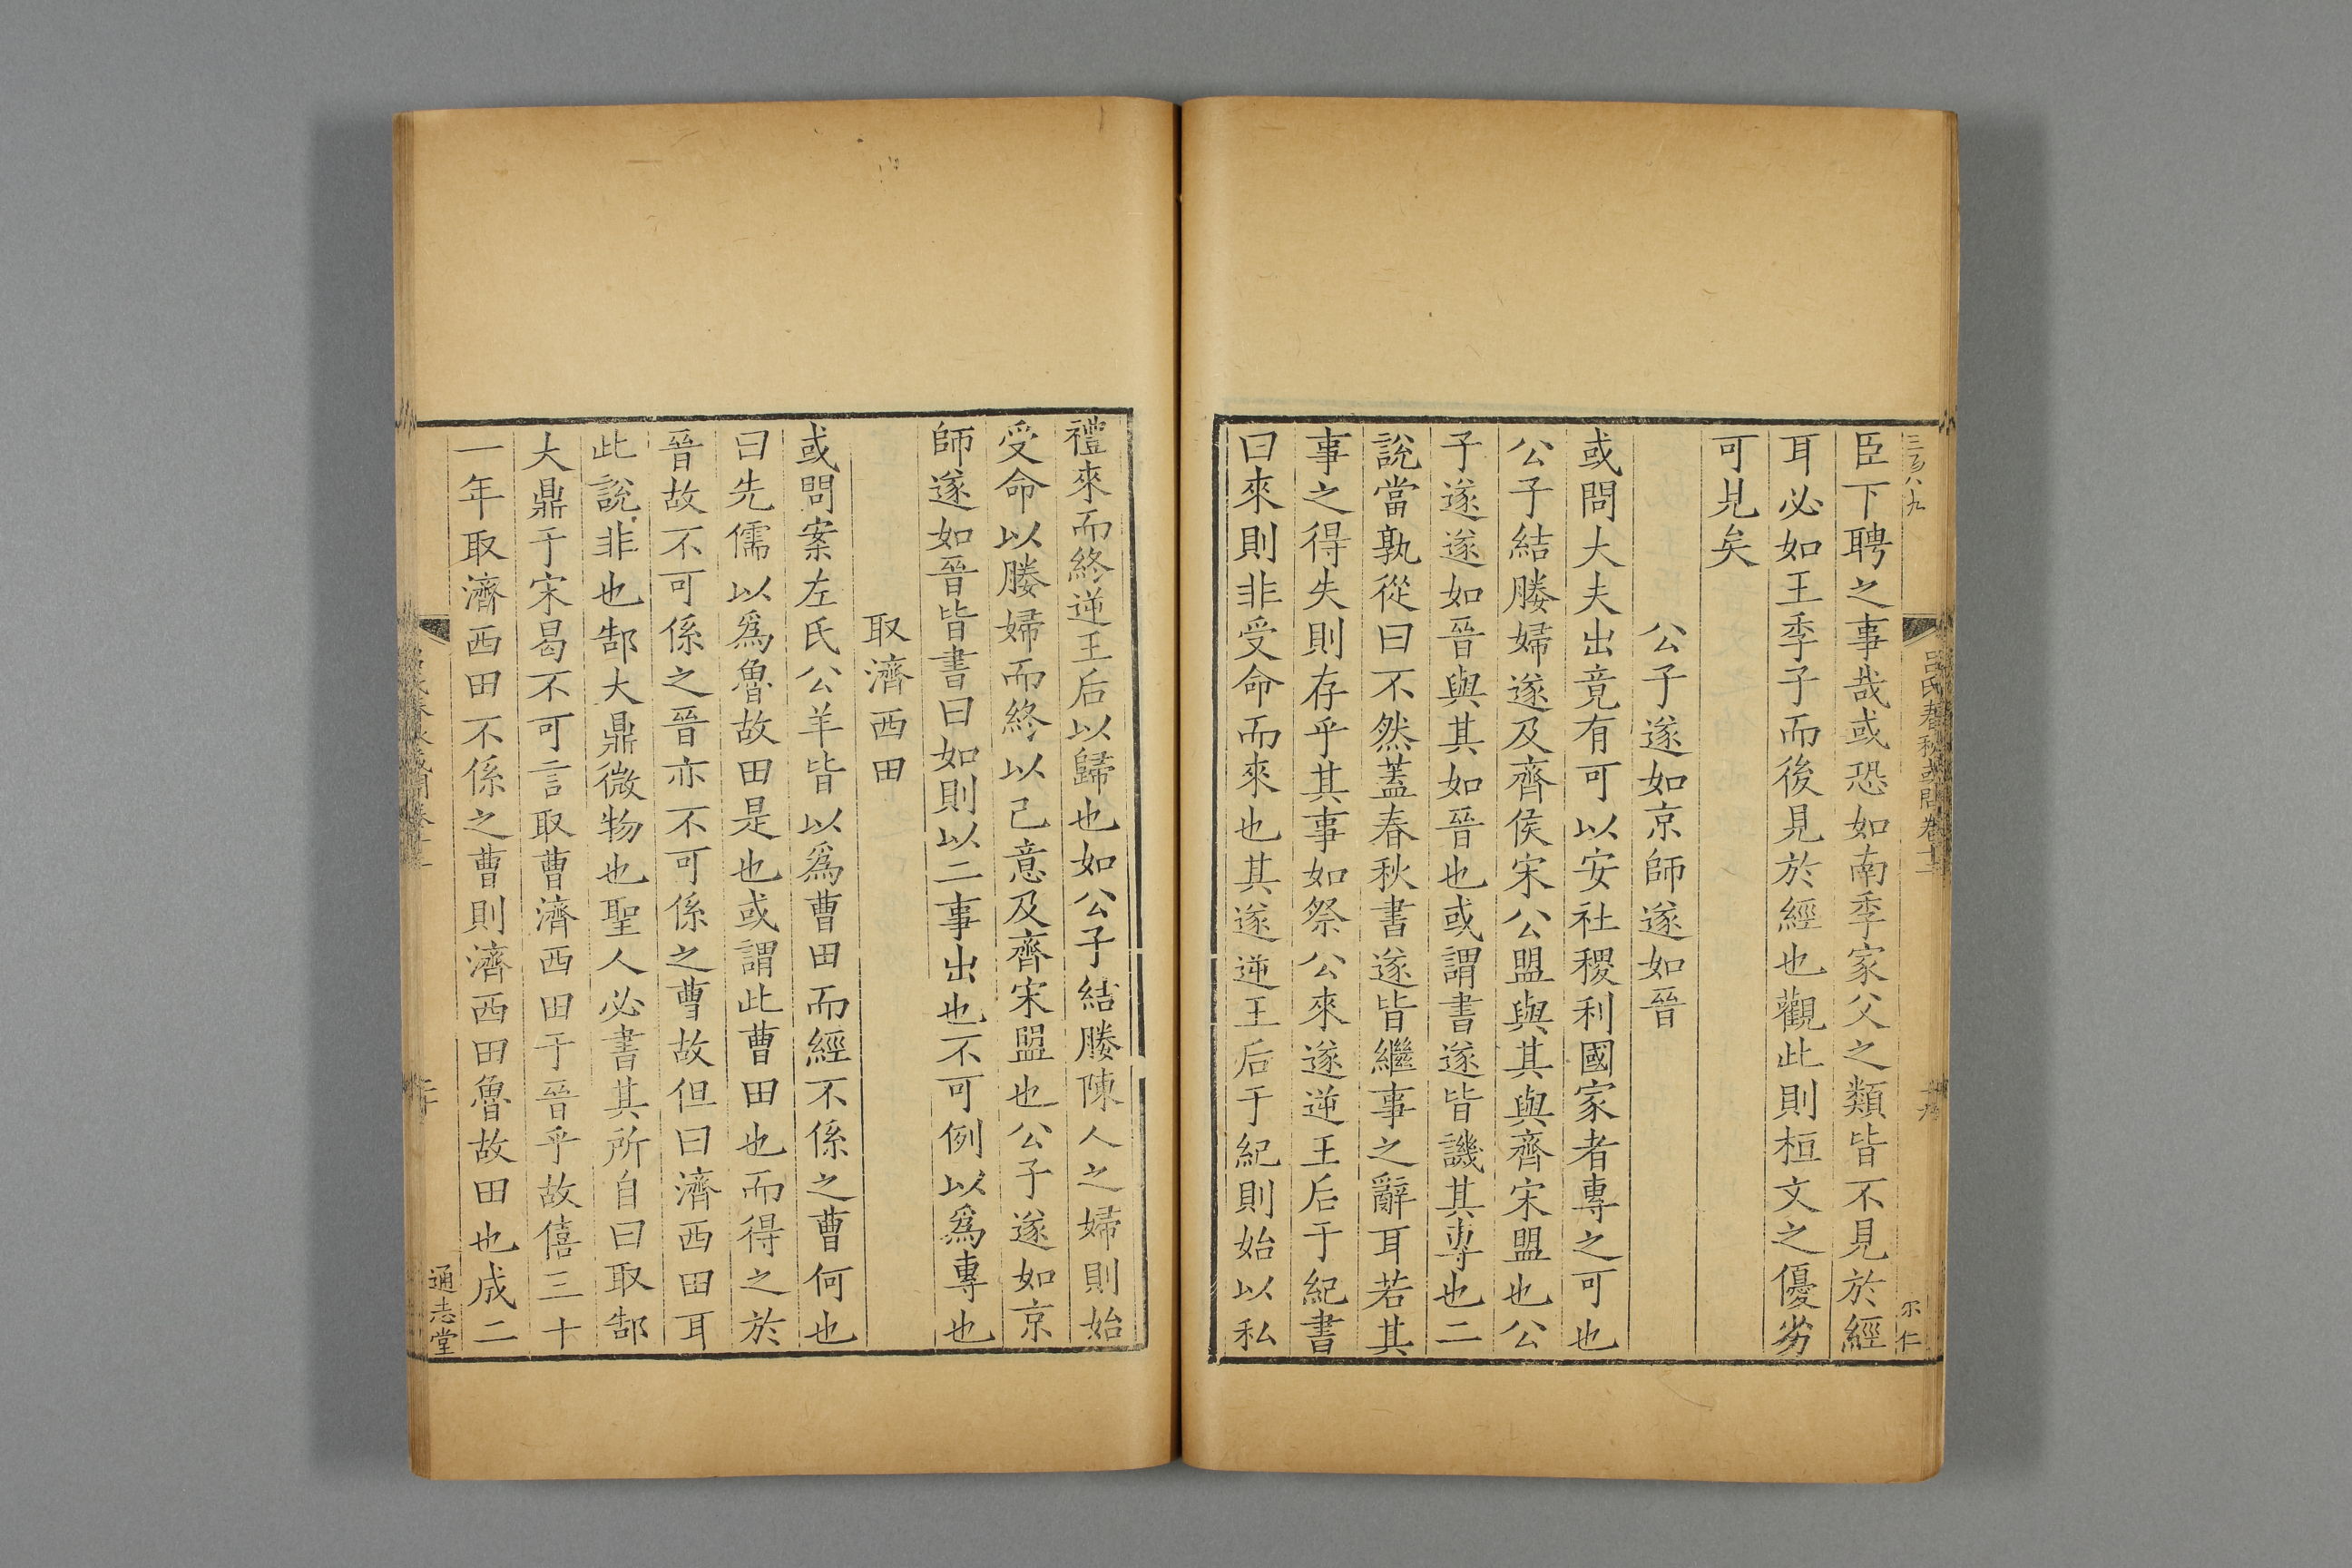 臣下聘之事哉或恐如南季家父之類皆不見於經
耳必如王季子而後見於經也觀此則桓文之優劣
可見矣
公子遂如京師遂如晉
或問大夫出竟有可以安社稷利國家者專之可也
公子結媵婦遂及齊侯宋公盟與其與齊宋盟也公
子遂遂如晉與其如晉也或謂書遂皆譏其專也二
說當孰從曰不然蓋春秋書遂皆繼事之辭耳若其
事之得失則存乎其事如祭公來遂逆王后于紀書
曰來則非受命而來也其遂逆王后于紀則始以私
禮來而終逆王后以歸也如公子結媵陳人之婦則始
受命以媵婦而終以己意及齊宋盟也公子遂如京
師遂如晉皆書曰如則以二事出也不可例以爲專也
取濟西田
或問案左氏公羊皆以爲曹田而經不係之曹何也
曰先儒以爲魯故田是也或謂此曹田也而得之於
晉故不可係之晉亦不可係之曹故但曰濟西田耳
此說非也郜大鼎微物也聖人必書其所自曰取郜
大鼎于宋曷不可言取曹濟西田于晉乎故僖三十
一年取濟西田不係之曹則濟西田魯故田也成二
通志堂